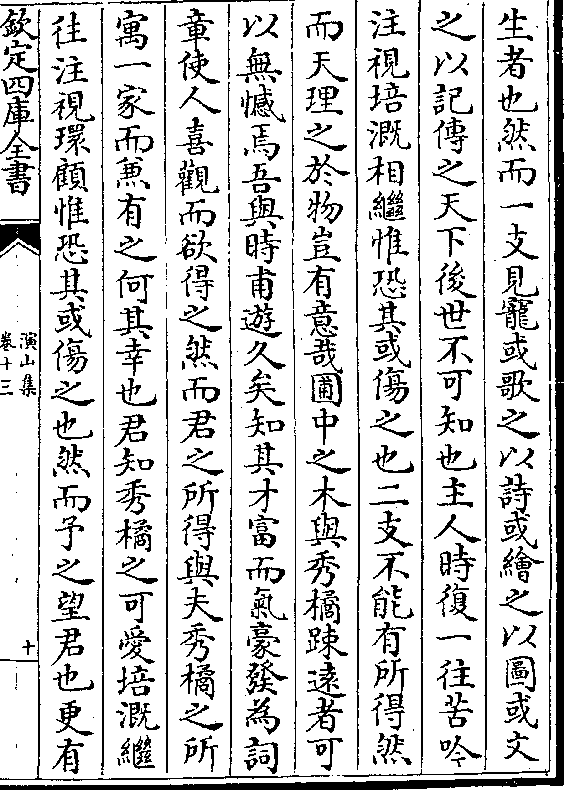 生者也然而一支見寵或歌之以詩或繪之以圖或文
之以記傳之天下後世不可知也主人時復一往苦吟
注視培溉相繼惟恐其或傷之也二支不能有所得然
而天理之於物豈有意哉圃中之木與秀橘踈遠者可
以無憾焉吾與時甫遊久矣知其才富而氣豪發為詞
章使人喜觀而欲得之然而君之所得與夫秀橘之所
寓一家而兼有之何其幸也君知秀橘之可愛培溉繼
往注視環顧惟恐其或傷之也然而予之望君也更有
欽定四庫全書
演山集
卷十三
十